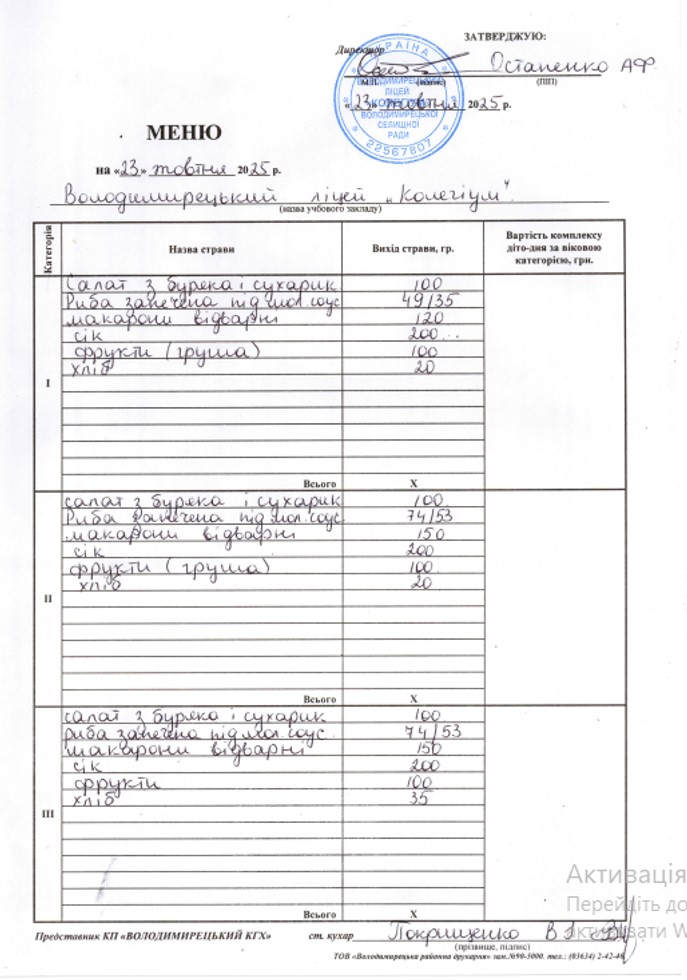 ЗАТВЕРДЖУЮ:
Директор
Остапенко А.Ф.
М.П. (підпис) (ПІП)
«23» жовтня 2025 р.
УКРАЇНА
ВОЛОДИМИРЕЦЬКИЙ
ЛІЦЕЙ
КОЛЕГІУМ
ВОЛОДИМИРЕЦЬКОЇ
СЕЛИЩНОЇ
РАДИ
22567807
МЕНЮ
на «23» жовтня 2025 р.
Володимирецький ліцей „Колегіум"
(назва учбового закладу)
Категорія Назва страви Вихід страви, гр. Вартість комплексу діто-дня за віковою категорією, грн.
I
Салат з буряка і сухарик 100
Риба запечена під мол. соус 49/35
макарони відварні 120
сік 200
фрукти (груша) 100
хліб 20
Всього Х
II
салат з буряка і сухарик 100
Риба запечена під мол. соус 74/53
макарони відварні 150
сік 200
фрукти (груша) 100
хліб 20
Всього Х
III
салат з буряка і сухарик 100
риба запечена під мол. соус 74/53
макарони відварні 150
сік 200
фрукти 100
хліб 35
Всього Х
Представник КП «ВОЛОДИМИРЕЦЬКИЙ КГХ» ст. кухар
(прізвище, підпис)
ТОВ «Володимирецька районна друкарня» зам.№90-5000. тел.: (03634) 2-42-46
Активація
Перейдіть до
активувати W